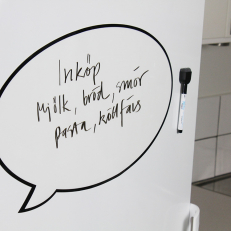 Inköp
Mjölk, bröd, smör
pasta, köttfärs